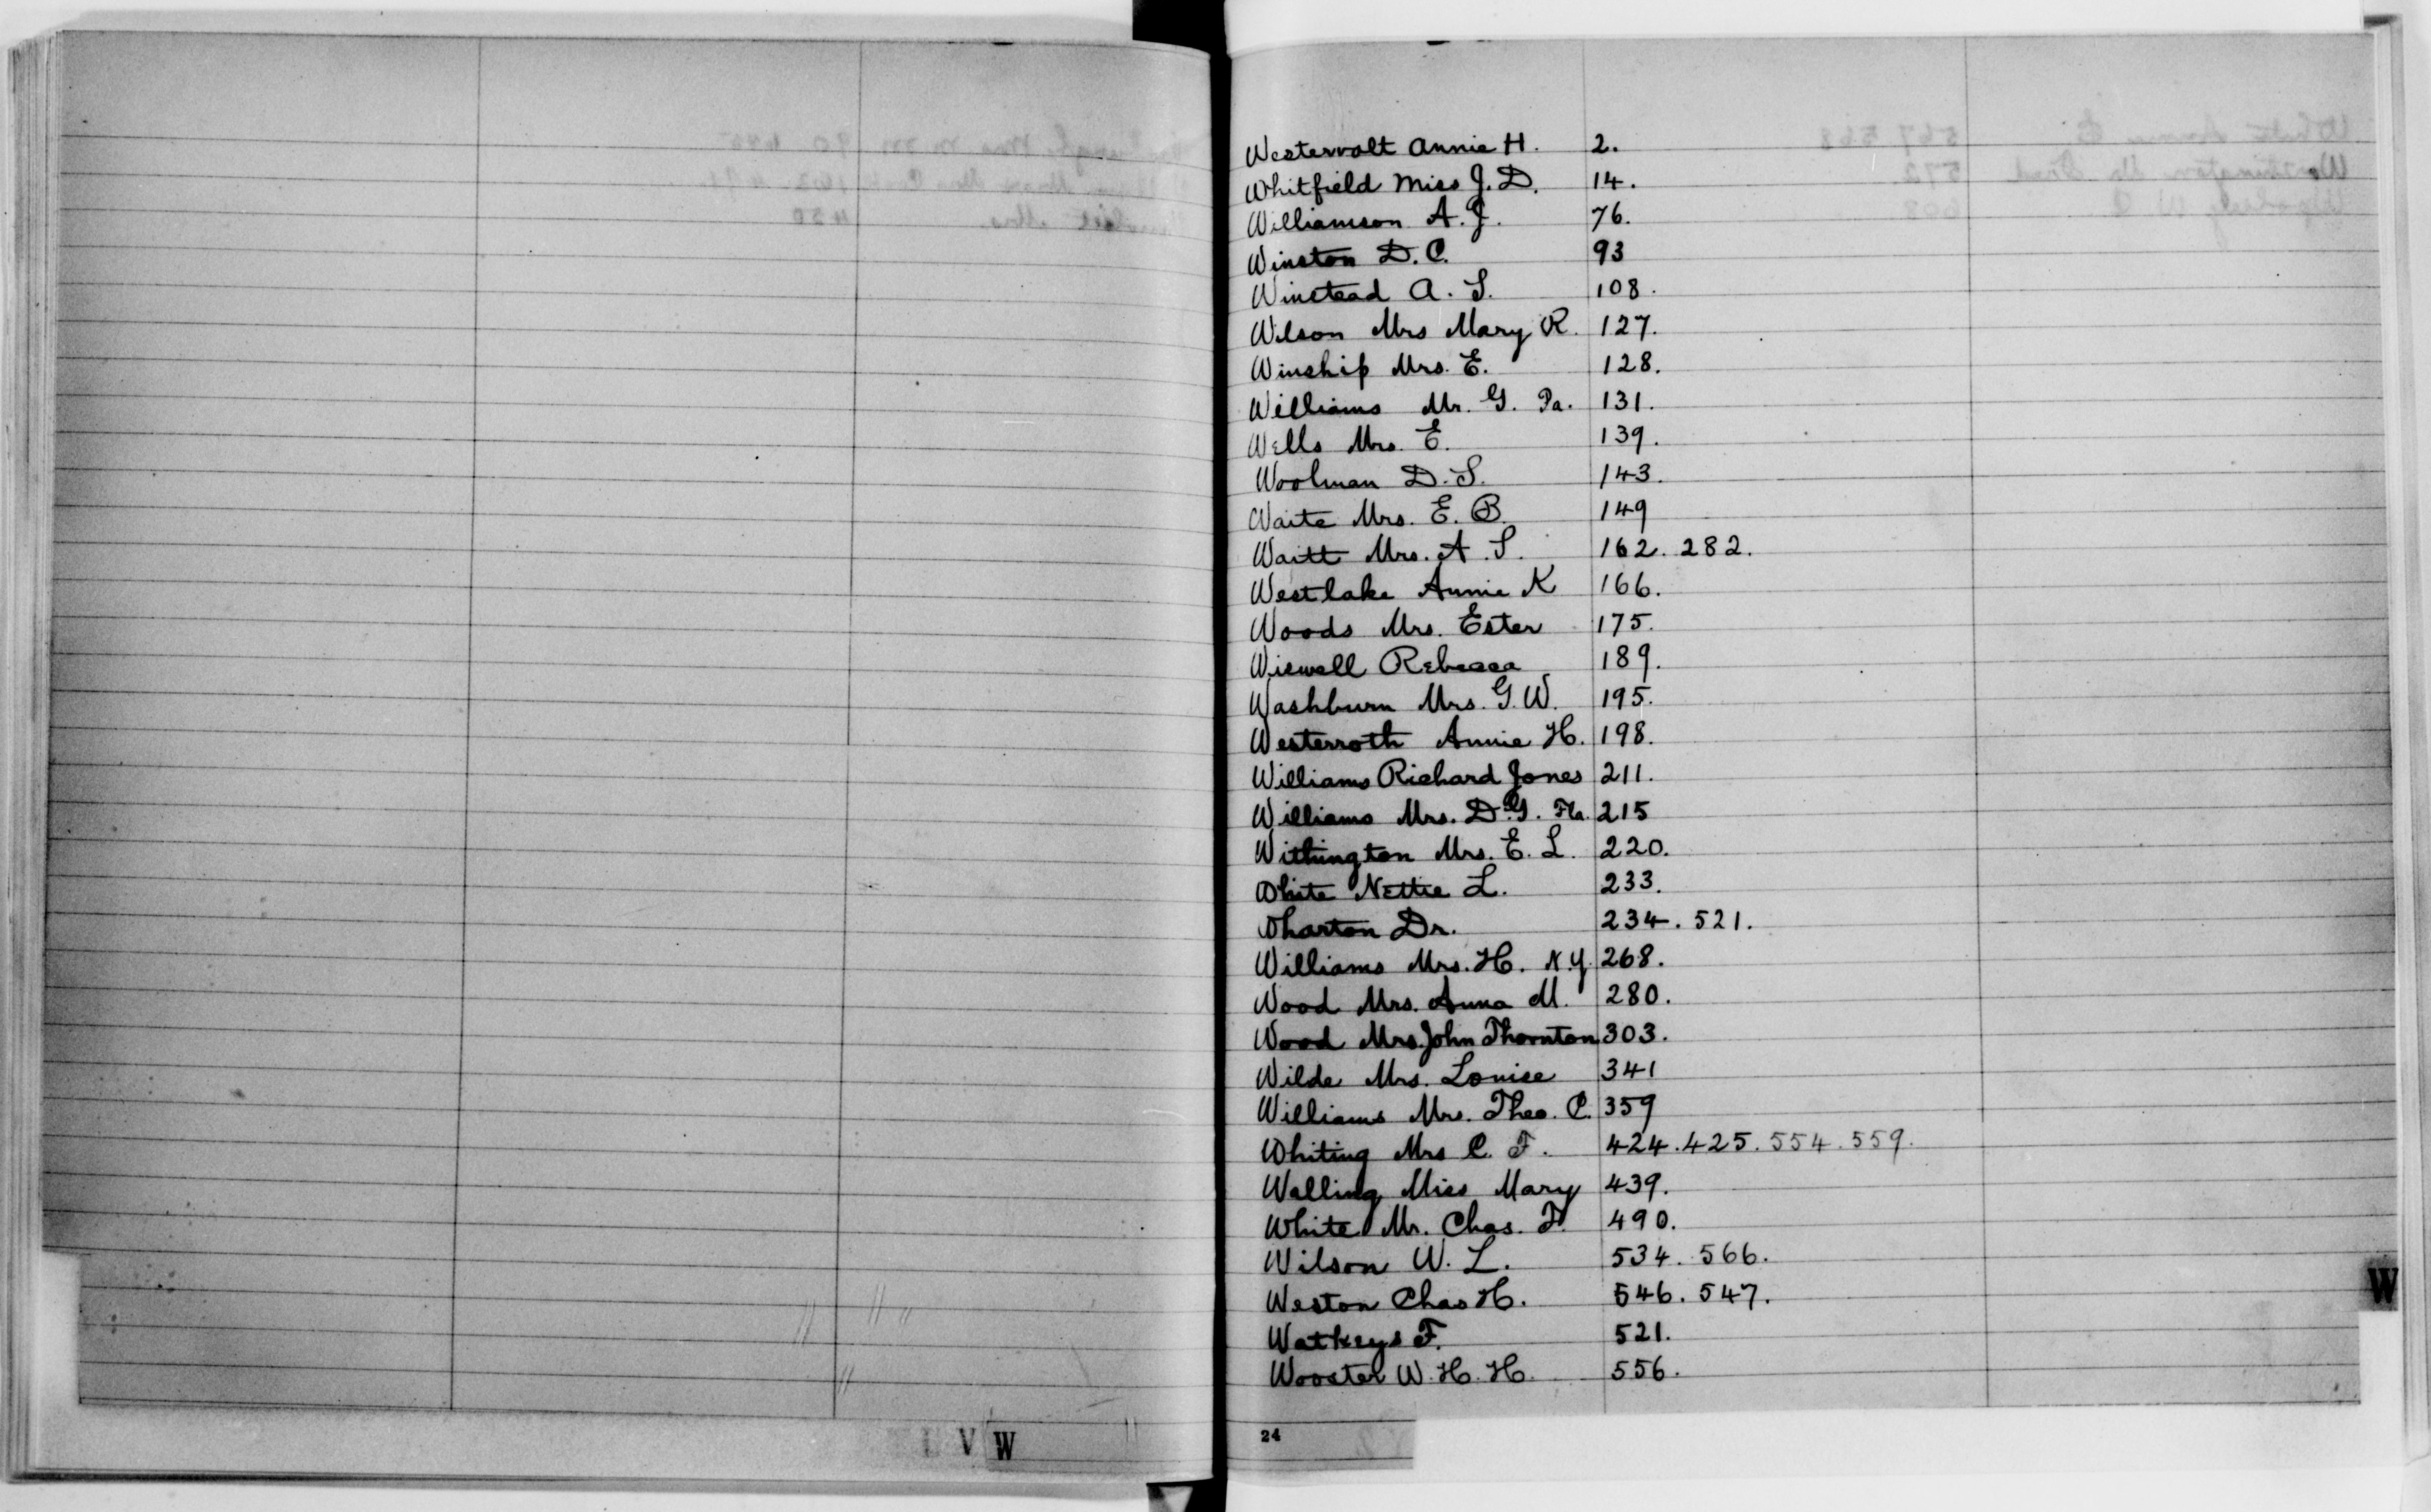 Westervolt Annie H. 2.
Whitfield Miss J. D. 14.
Williamson A. J. 76.
Winston D. C. 93
Winstead A. S. 108.
Wilson Mrs Mary R. 127.
Winship Mrs. E. 128.
Williams Mr. G. Pa. 131.
Wells Mrs. E. 139.
Woolman D. S. 143.
Waite Mrs. E. B. 149
Waitt Mrs. A. S. 162. 282.
Westlake Annie K 166.
Woods Mrs. Ester 175.
Wiswell Rebecca 189.
Washburn Mrs. G. W. 195.
Westerroth Annie H. 198.
Williams Richard Jones 211.
Williams Mrs. D. G. Fla. 215
Withington Mrs. E. L. 220.
White Nettie L. 233.
Wharton Dr. 234. 521.
Williams Mrs. H. N.Y. 268.
Wood Mrs. Anna M. 280.
Wood Mrs. John Thornton 303.
Wilde Mrs. Louise 341
Williams Mrs. Theo. C. 359
Whiting Mrs C. F. 424. 425. 554. 559.
Walling Miss Mary 439.
White Mr. Chas. F. 490.
Wilson W. L. 534. 566.
Weston Chas H. 546. 547.
Watkeys F. 521.
Wooster W. H. H. 556.
W
V W
24